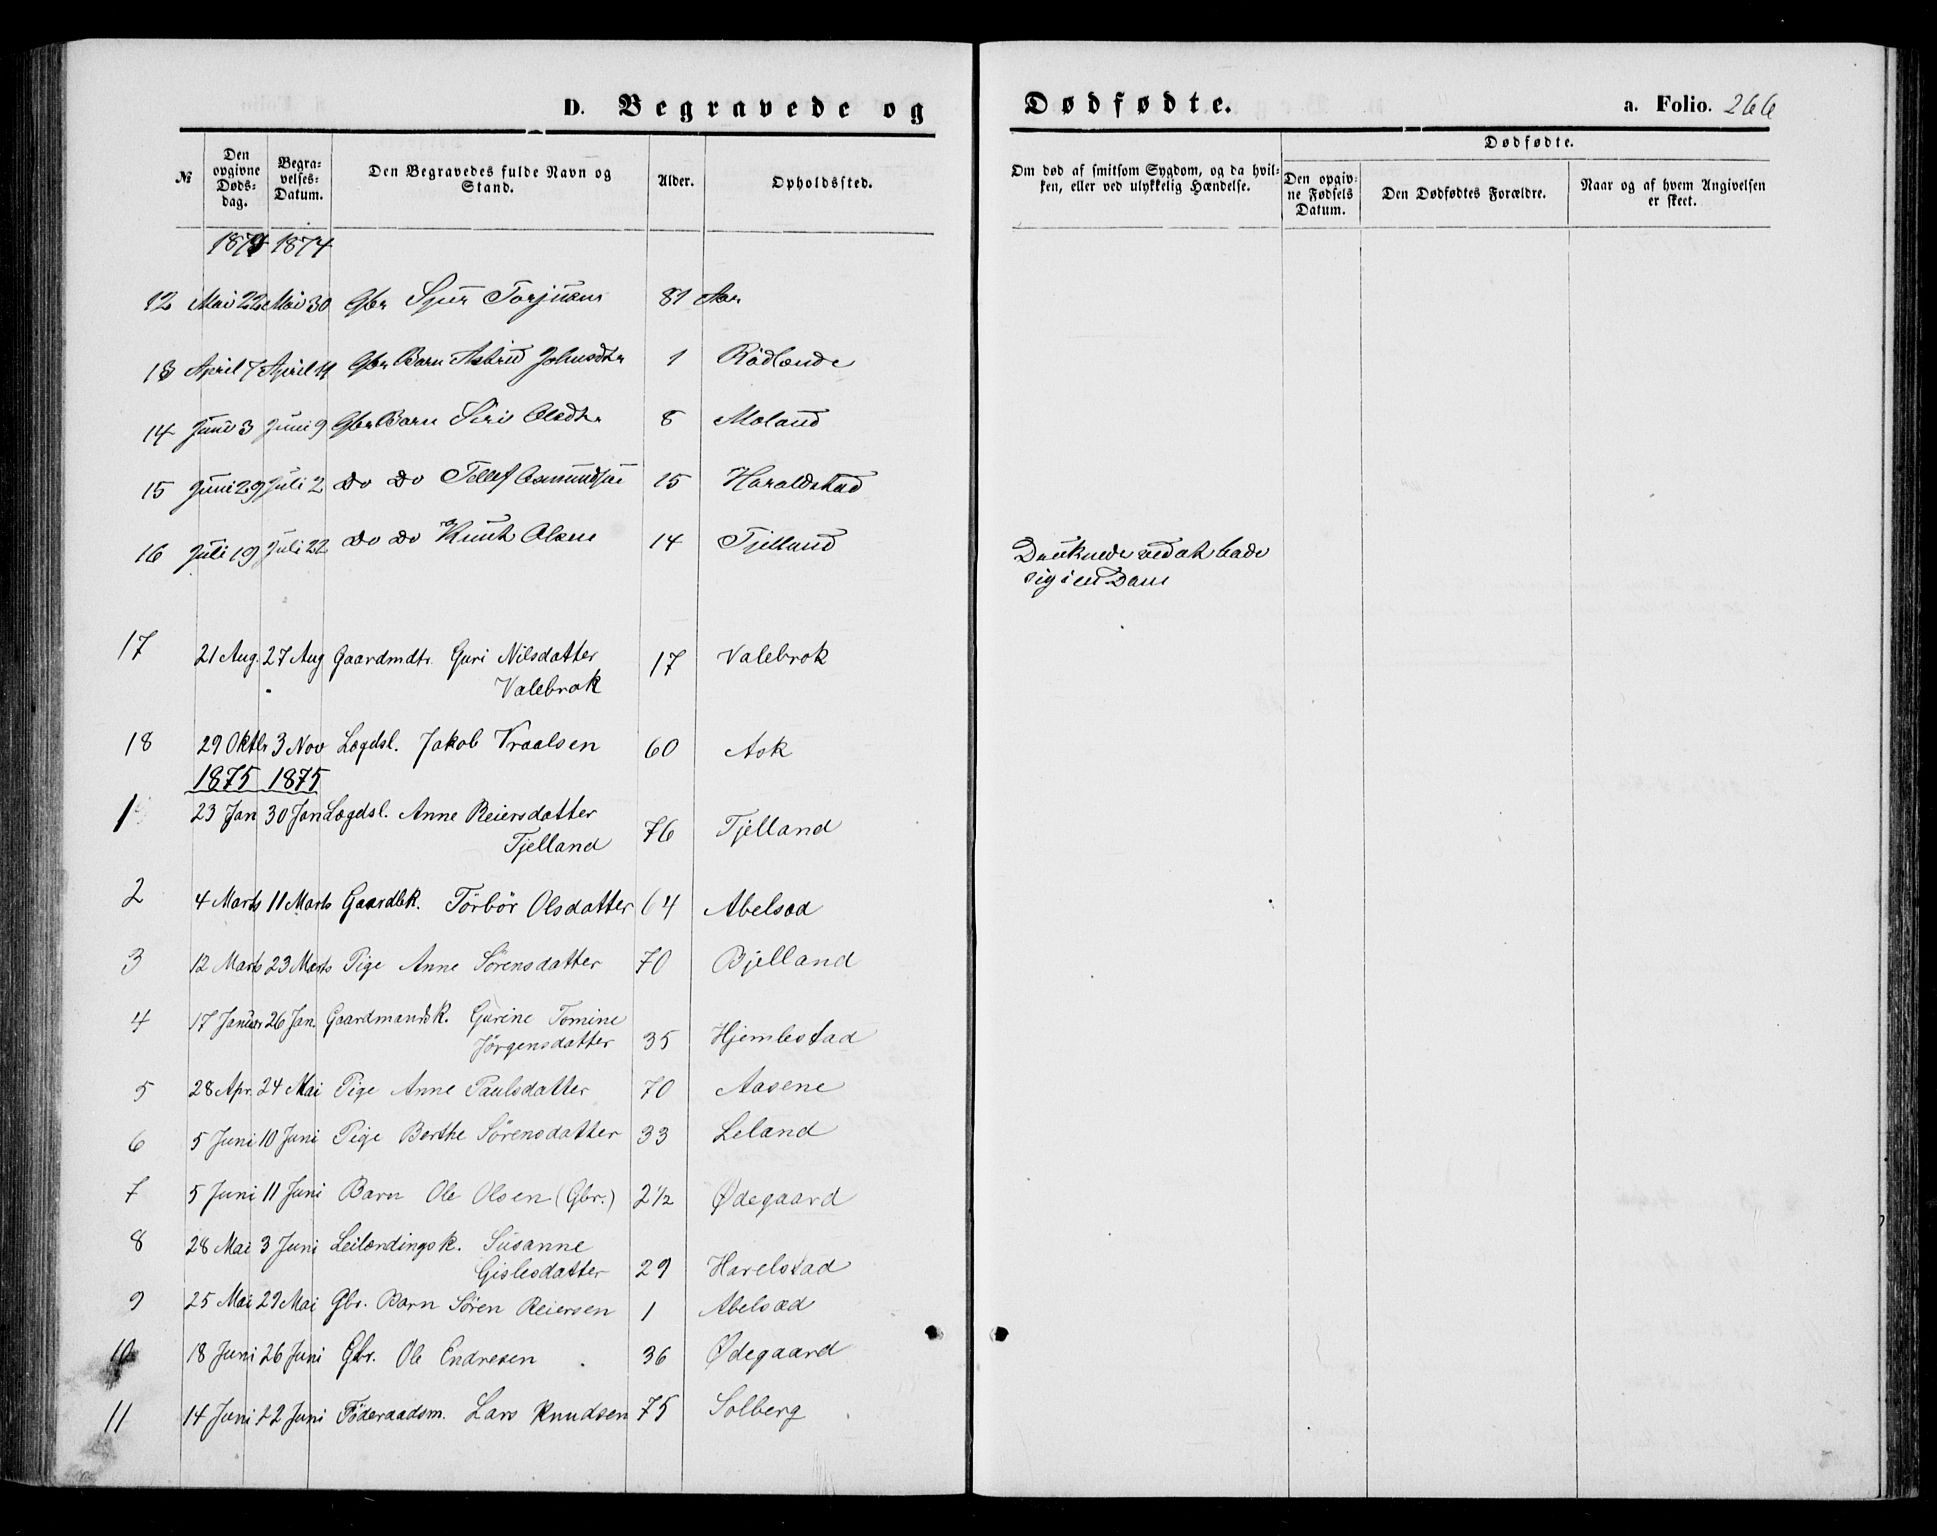 D. Begravede og Dødfødte. a. Folio. 266
№ Den opgivne Døds-dag. Begra-velses-Datum. Den Begravedes fulde Navn og Stand. Alder. Opholdssted. Om død af smitsom Sygdom, og da hvil-ken, eller ved ulykkelig Hændelse. Dødfødte. Den opgiv-ne Fødsels Datum. Den Dødfødtes Forældre. Naar og af hvem Angivelsen er skeet.
1874 1874
12 Mai 22 Mai 30 Gbr Sjur Torjusen 81 Aar
13 April 7 April 11 Gbr Barn Astrid Johnsdtr 1 Rödlande
14 Juni 3 Juni 9 Gbr Barn Siri Olsdtr 8 Moland
15 Juni 29 Juli 2 Do Do Tellef Osmundsen 15 Haraldstad
16 Juli 19 Juli 22 Do Do Knut Olsen 14 Tjelland Druknede ved at bade
sig i en Dam
17 21 Aug. 27 Aug Gaardmdtr. Guri Nilsdatter 17 Valebrok
Valebrok
18 29 Oktbr 3 Nov Lægdsl. Jakob Vraalsen 60 Ask
1875 1875
1 23 Jan 30 Jan Lægdsl. Anne Reiersdatter
Tjelland 76 Tjelland
2 4 Marts 11 Marts Gaardbk. Törbör Olsdatter 64 Abelsæd
3 12 Marts 23 Marts Pige Anne Sörensdatter 70 Bjelland
4 17 Januar 26 Jan. Gaardmandsk. Gurine Tomine
Jörgensdatter 35 Hjemlestad
5 28 Apr. 24 Mai Pige Anne Paulsdatter 70 Aasene
6 5 Juni 10 Juni Pige Berthe Sörensdatter 33 Leland
7 5 Juni 11 Juni Barn Ole Olsen (Gbr.) 2½ Ødegaard
8 28 Mai 3 Juni Leilændingsk. Susanne
Gislesdatter 29 Harelstad
9 25 Mai 29 Mai Gbr. Barn Sören Reiersen 1 Abelsæd
10 18 Juni 26 Juni Gbr. Ole Endresen 36 Ødegaard
11 14 Juni 22 Juni Föderaadsm. Lars Knudsen 75 Solberg